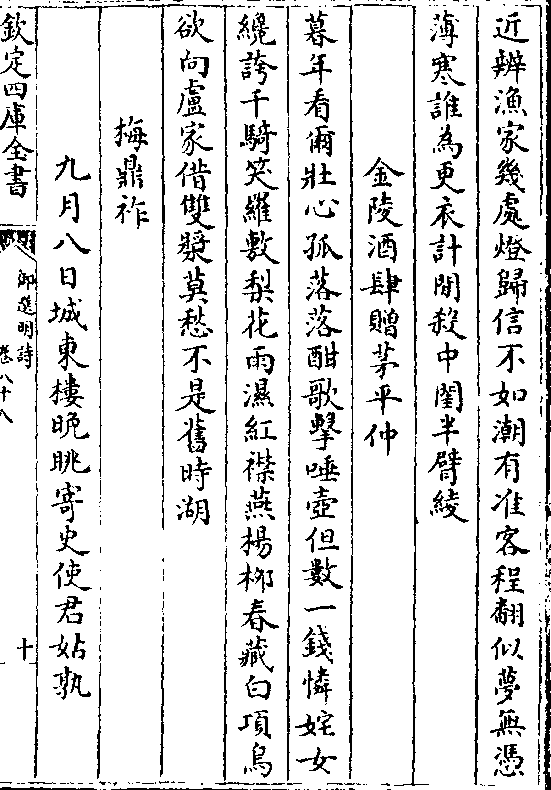 近辨漁家幾處燈歸信不如潮有准客程翻似夢無憑
薄寒誰為更衣計閒殺中閨半臂綾
金陵酒肆贈茅平仲
暮年看爾壯心孤落落酣歌擊唾壺但數一錢憐姹女
纔誇千騎笑羅敷梨花雨濕紅襟燕楊桺春藏白項烏
欲向盧家借雙槳莫愁不是舊時湖
梅鼎祚
九月八日城東樓晚眺寄史使君姑孰
欽定四庫全書
御選明詩
卷八十八
十